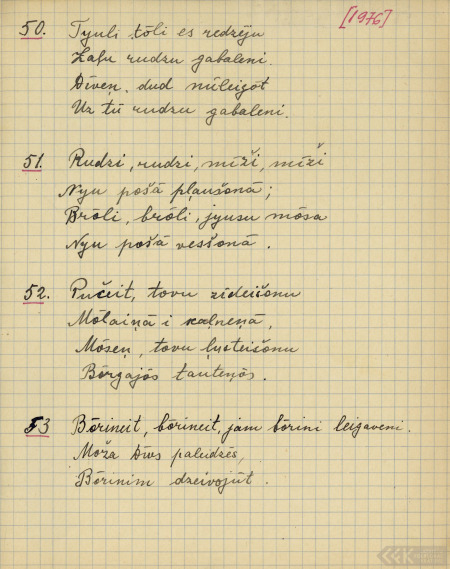 [1976]
50. Tyuli tōli es redzēju
Zaļu rudzu gabaleni.
Dīveņ, dud nūleigōt
Uz tū rudzu gabaleni.
51. Rudzi, rudzi, mīži, mīži
Nyu pošā pļaušonā;
Brōli, brōli, jyusu mōsa
Nyu pošā vesšonā.
52. Pučeit, tovu zīdeišonu
Mōlaiņā i kaļneņā,
Mōseņ, tovu ļusteišonu
Bōrgajōs tauteņōs.
53 Bōrineit, bōrineit, jam bōrini leigaveni.
Moža Dīvs paludzēs,
Bōrinim dzeivojūt.